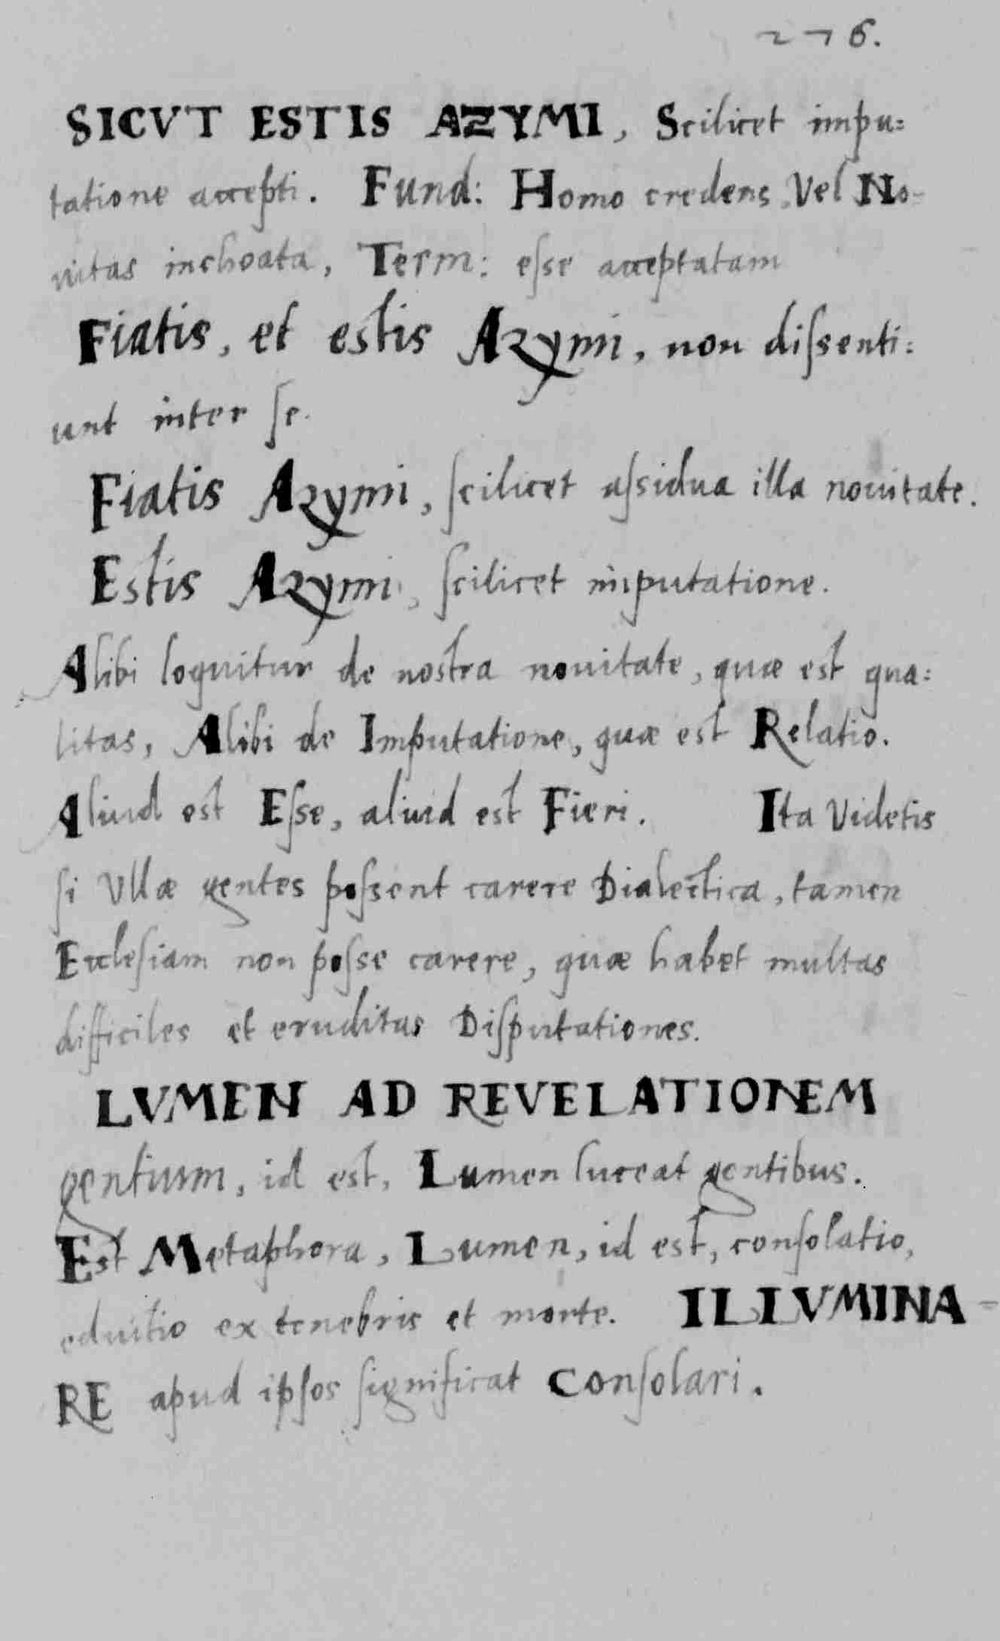 276.
SICVT ESTIS AZYMI, Scilicet impu:
tatione accepti. Fund: Homo credens, Vel No-
uitas inchoata, Term: eſse acceptatam
Fiatis, et estis Azymi, non diſsenti:
unt inter ſe.
Fiatis Azymi, ſcilicet aſsidua illa nouitate.
Estis Azymi, ſcilicet imputatione.
Alibi loquitur de nostra nouitate, quæ est qua:
litas, Alibi de Imputatione, quæ est Relatio.
Aliud est Eſse, aliud est Fieri. Ita Videtis
ſi Vllæ gentes poſsent carere Dialectica, tamen
Eccleſiam non poſse carere, quæ habet multas
difficiles et eruditas Diſputationes.
LVMEN AD REVELATIONEM
gentium, id est, Lumen luceat gentibus.
Est Metaphora, Lumen, id est, conſolatio,
eductio ex tenebris et morte. ILLVMINA-
RE apud ipſos ſignificat Conſolari.